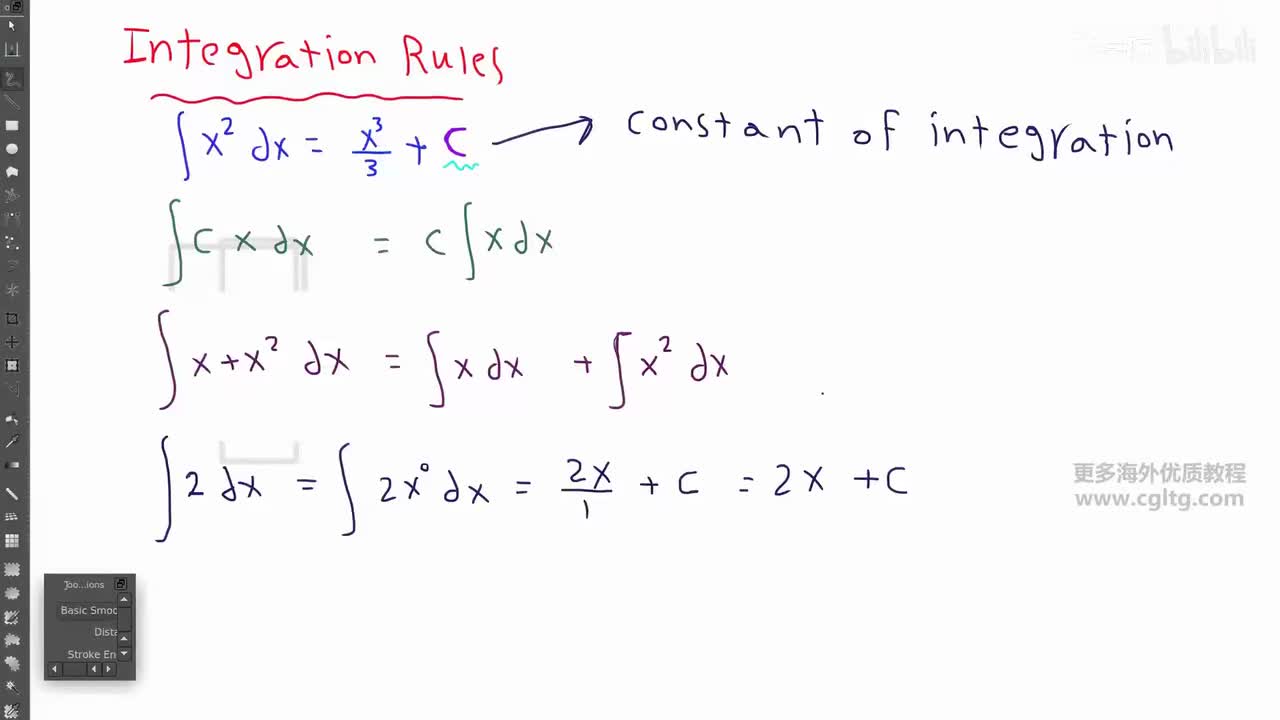 Integration Rules
bilibili
∫ x² dx = x³/3 + C → constant of integration
∫ c x dx = c ∫ x dx
∫ x + x² dx = ∫ x dx + ∫ x² dx
∫ 2 dx = ∫ 2x⁰ dx = 2x/1 + C = 2x + C
更多海外优质教程
www.cgltg.com
Too...ions
Basic Smoo
Dista
Stroke En